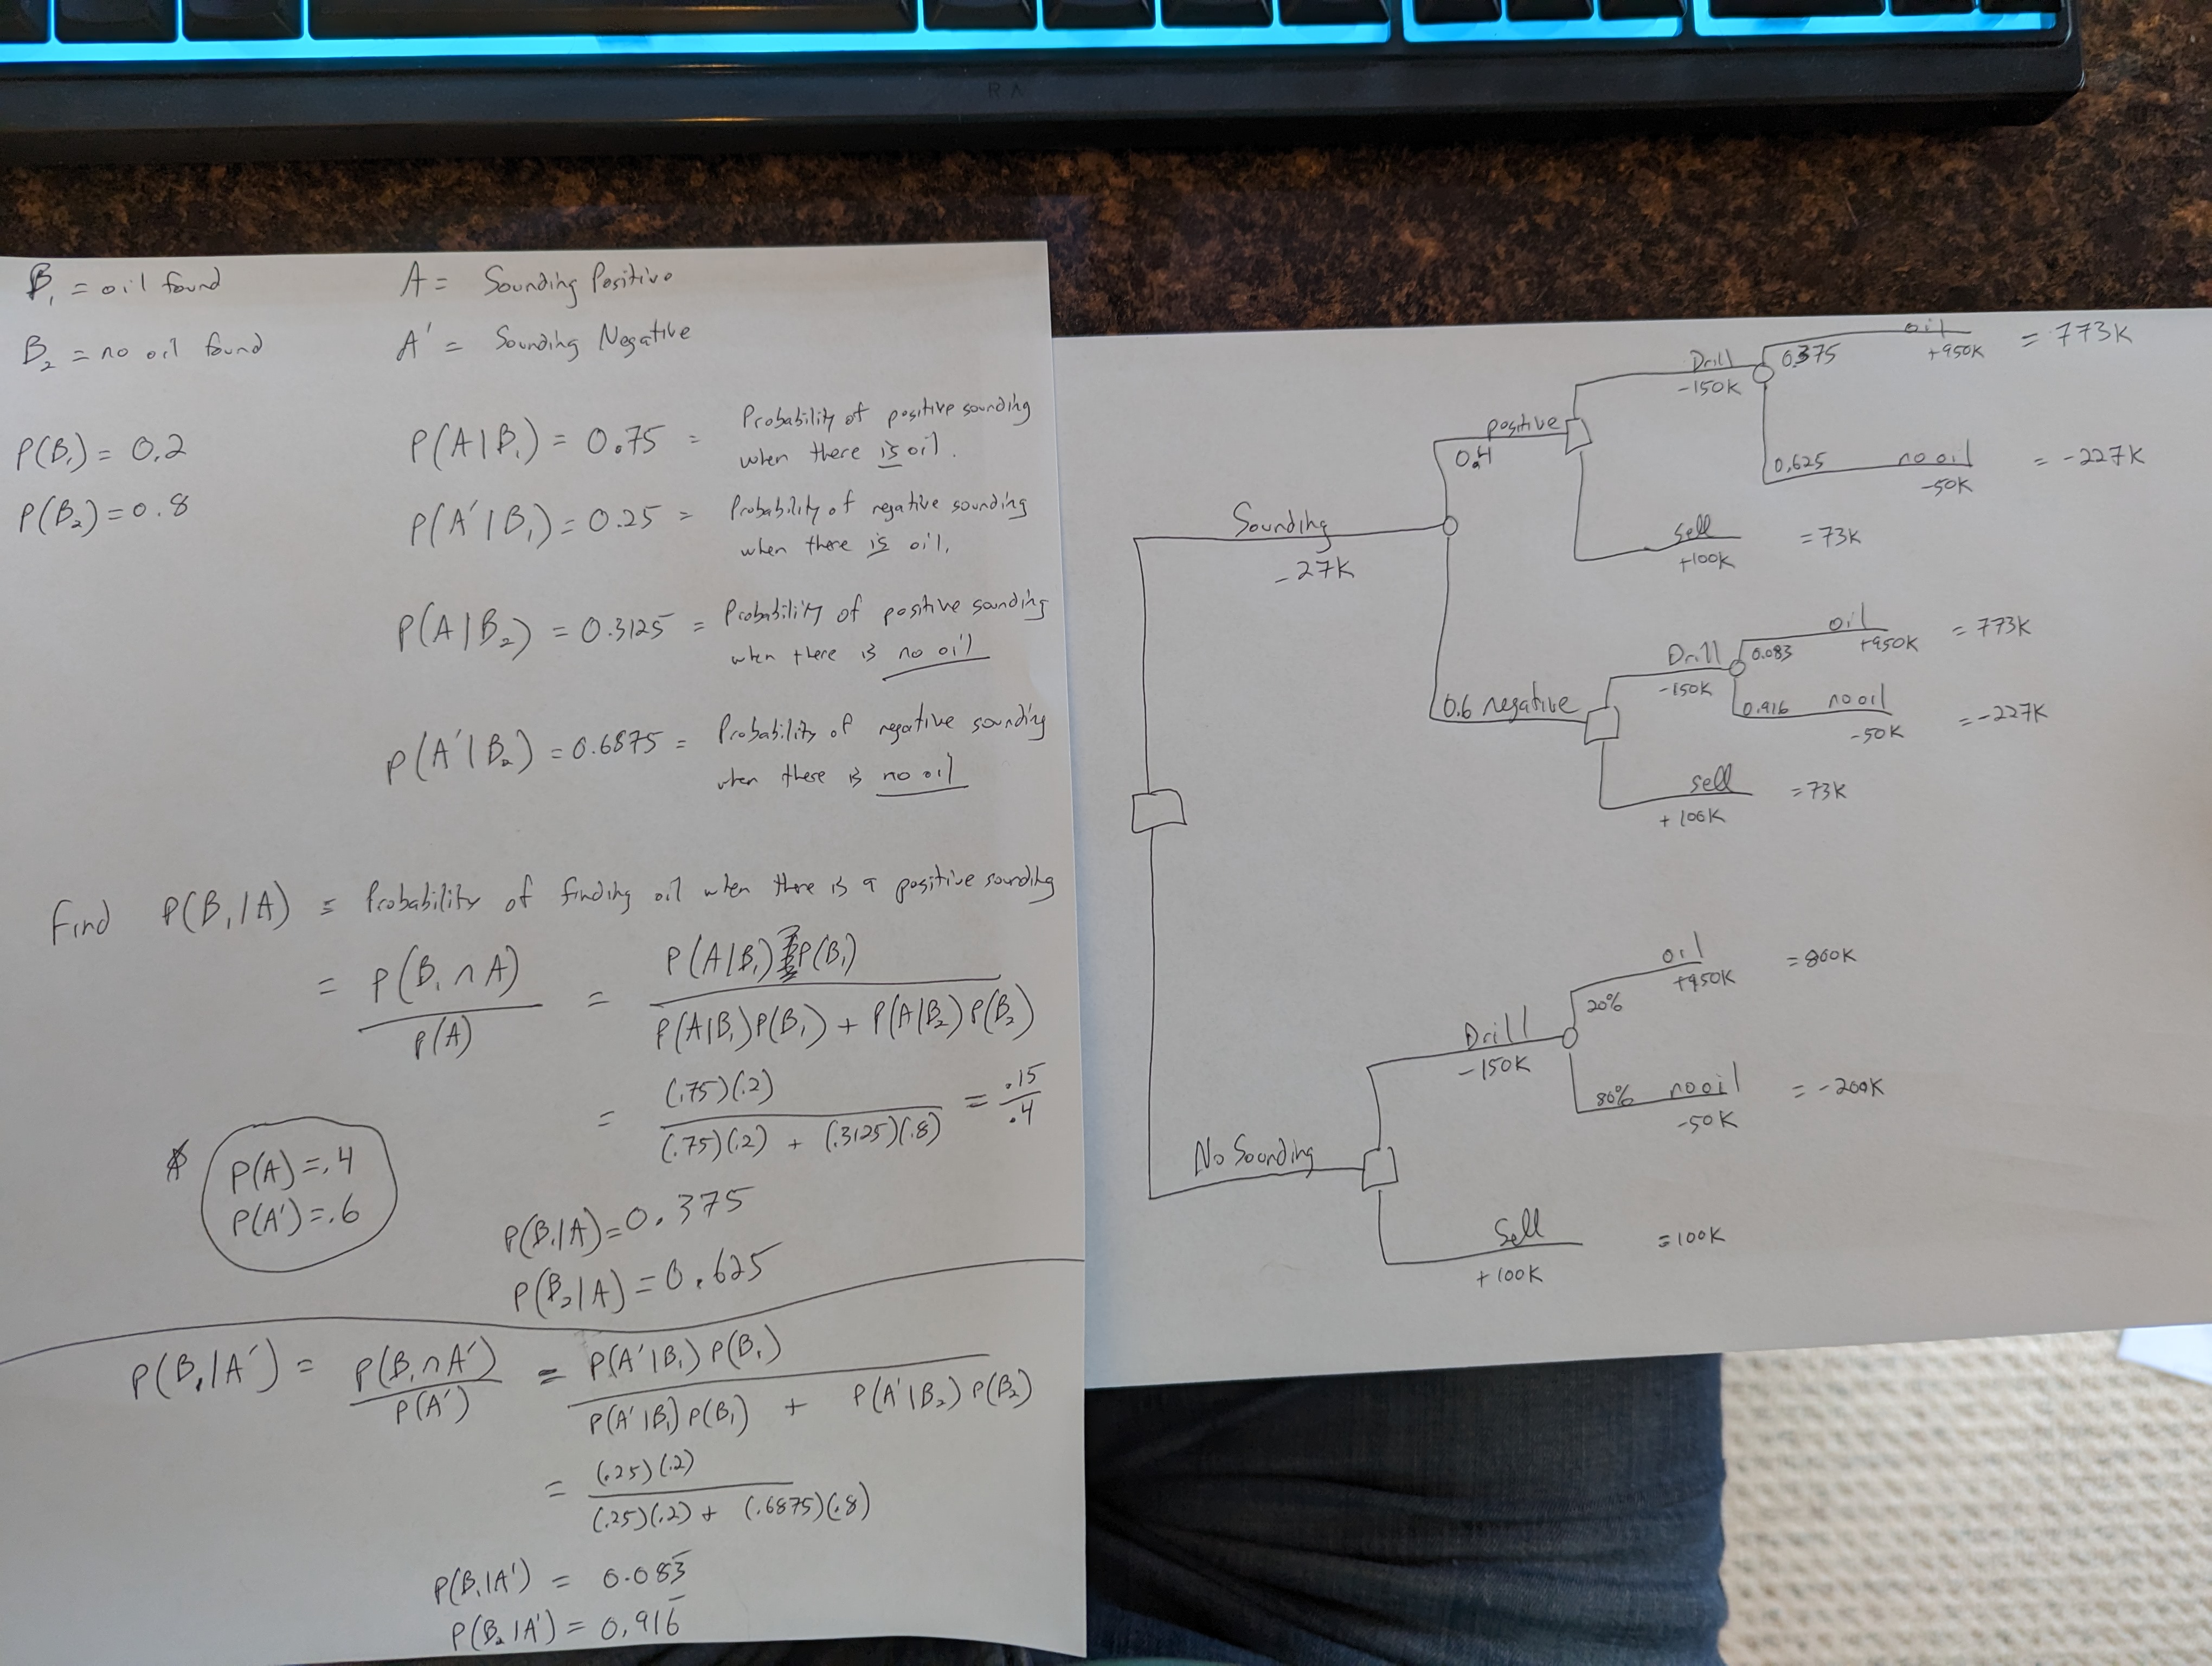 RA
B₁ = oil found
A = Sounding Positive
B₂ = no oil found
A' = Sounding Negative
P(B₁) = 0.2
P(B₂) = 0.8
P(A|B₁) = 0.75 = Probability of positive sounding
when there is oil.
P(A'|B₁) = 0.25 = Probability of negative sounding
when there is oil.
P(A|B₂) = 0.3125 = Probability of positive sounding
when there is no oil
P(A'|B₂) = 0.6875 = Probability of negative sounding
when there is no oil
Find P(B₁|A) = Probability of finding oil when there is a positive sounding
= P(B₁ ∩ A) / P(A) = P(A|B₁) P(B₁) / P(A|B₁)P(B₁) + P(A|B₂)P(B₂)
= (.75)(.2) / (.75)(.2) + (.3125)(.8) = .15 / .4
P(A) = .4
P(A') = .6
P(B₁|A) = 0.375
P(B₂|A) = 0.625
P(B₁|A') = P(B₁ ∩ A') / P(A') = P(A'|B₁) P(B₁) / P(A'|B₁) P(B₁) + P(A'|B₂) P(B₂)
= (.25)(.2) / (.25)(.2) + (.6875)(.8)
P(B₁|A') = 0.083̅
P(B₂|A') = 0.916̅
Sounding
-27K
positive
0.4
Drill
-150K
0.375
oil
+950K
= 773K
0.625
no oil
-50K
= -227K
sell
+100K
= 73K
0.6 negative
Drill
-150K
0.083
oil
+950K
= 773K
0.916
no oil
-50K
= -227K
sell
+100K
= 73K
No Sounding
Drill
-150K
20%
oil
+950K
= 800K
80%
no oil
-50K
= -200K
Sell
+100K
= 100K